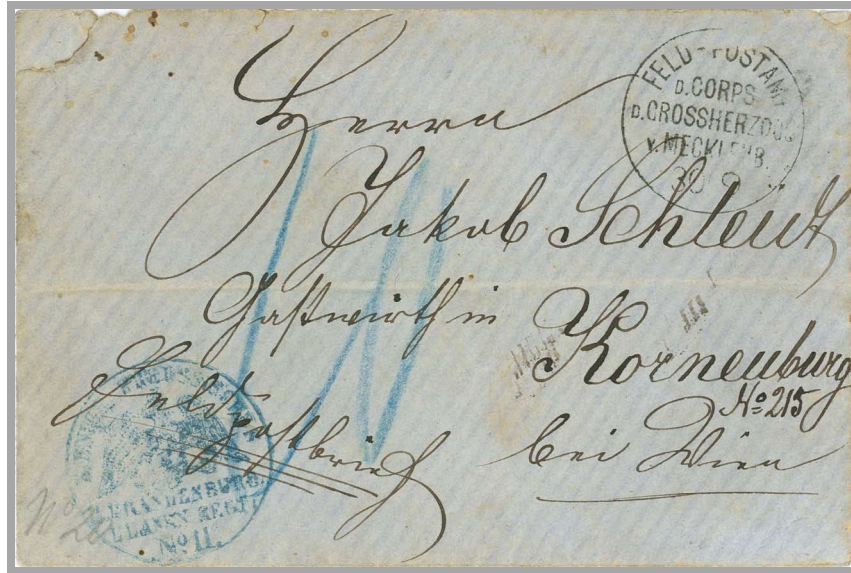 FELD-POSTAMT
D. CORPS
D. GROSSHERZOGS
V. MECKLENB.
30 9
Herrn
Jakob Schleudt
Gastwirth in
Korneuburg
No 215
bei Wien
Feld
postbrief
10
BRANDENBURG.
ULANEN REGT
No 11.
No 20